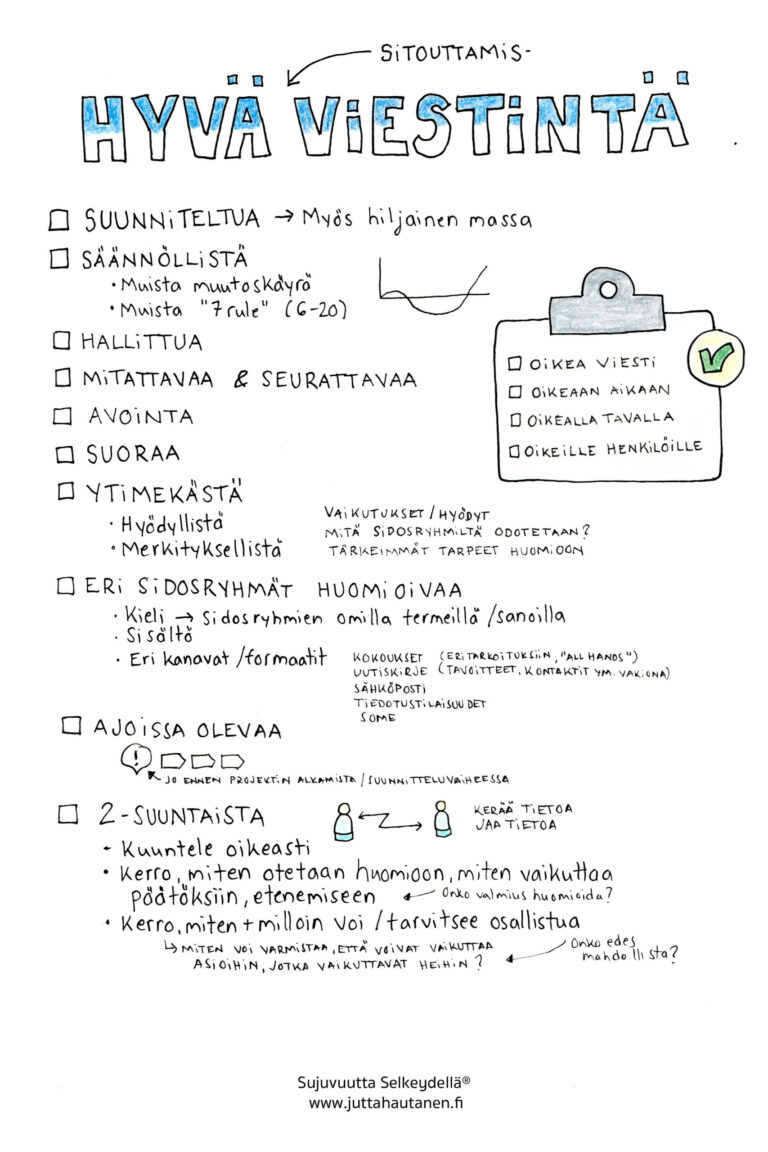 SITOUTTAMIS-
HYVÄ VIESTINTÄ
SUUNNITELTUA → Myös hiljainen massa
SÄÄNNÖLLISTÄ
• Muista muutoskäyrä
• Muista "7 rule" (6-20)
HALLITTUA
MITATTAVAA & SEURATTAVAA
AVOINTA
SUORAA
OIKEA VIESTI
OIKEAAN AIKAAN
OIKEALLA TAVALLA
OIKEILLE HENKILÖILLE
YTIMEKÄSTÄ
• Hyödyllistä
• Merkityksellistä
VAIKUTUKSET / HYÖDYT
MITÄ SIDOSRYHMILTÄ ODOTETAAN?
TÄRKEIMMÄT TARPEET HUOMIOON
ERI SIDOSRYHMÄT HUOMIOIVAA
• Kieli → Sidosryhmien omilla termeillä / sanoilla
• Sisältö
• Eri kanavat / formaatit
KOKOUKSET (ERI TARKOITUKSIIN, "ALL HANDS")
UUTISKIRJE (TAVOITTEET, KONTAKTIT YM. VAKIONA)
SÄHKÖPOSTI
TIEDOTUSTILAISUUDET
SOME
AJOISSA OLEVAA
!
JO ENNEN PROJEKTIN ALKAMISTA / SUUNNITTELUVAIHEESSA
2-SUUNTAISTA
KERÄÄ TIETOA
JAA TIETOA
• Kuuntele oikeasti
• Kerro, miten otetaan huomioon, miten vaikuttaa
päätöksiin, etenemiseen
Onko valmius huomioida?
• Kerro, miten + milloin voi / tarvitsee osallistua
↳ MITEN VOI VARMISTAA, ETTÄ VOIVAT VAIKUTTAA
ASIOIHIN, JOTKA VAIKUTTAVAT HEIHIN?
Onko edes
mahdollista?
Sujuvuutta Selkeydellä®
www.juttahautanen.fi